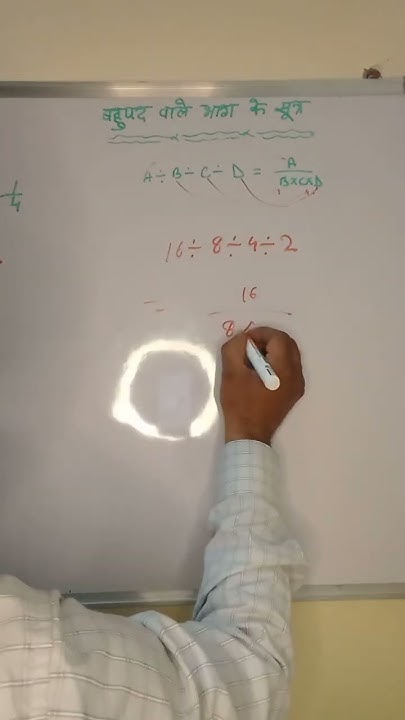 बहुपद वाले भाग के सूत्र
A ÷ B ÷ C ÷ D = A
B×C×D
1
4
16 ÷ 8 ÷ 4 ÷ 2
= 16
8